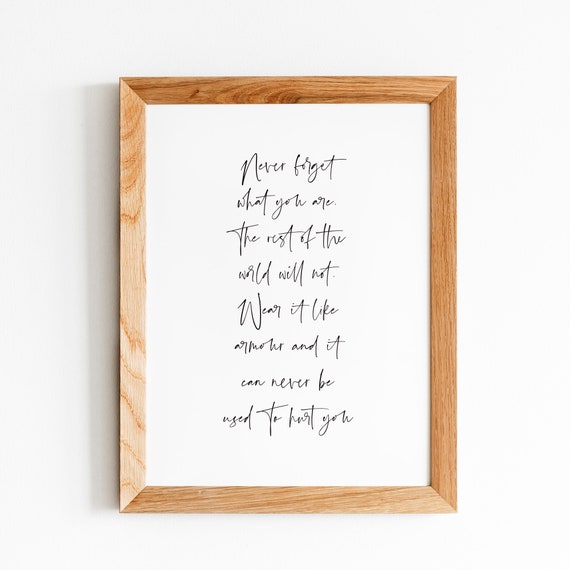 Never forget
what you are.
The rest of the
world will not.
Wear it like
armour and it
can never be
used To hurt you